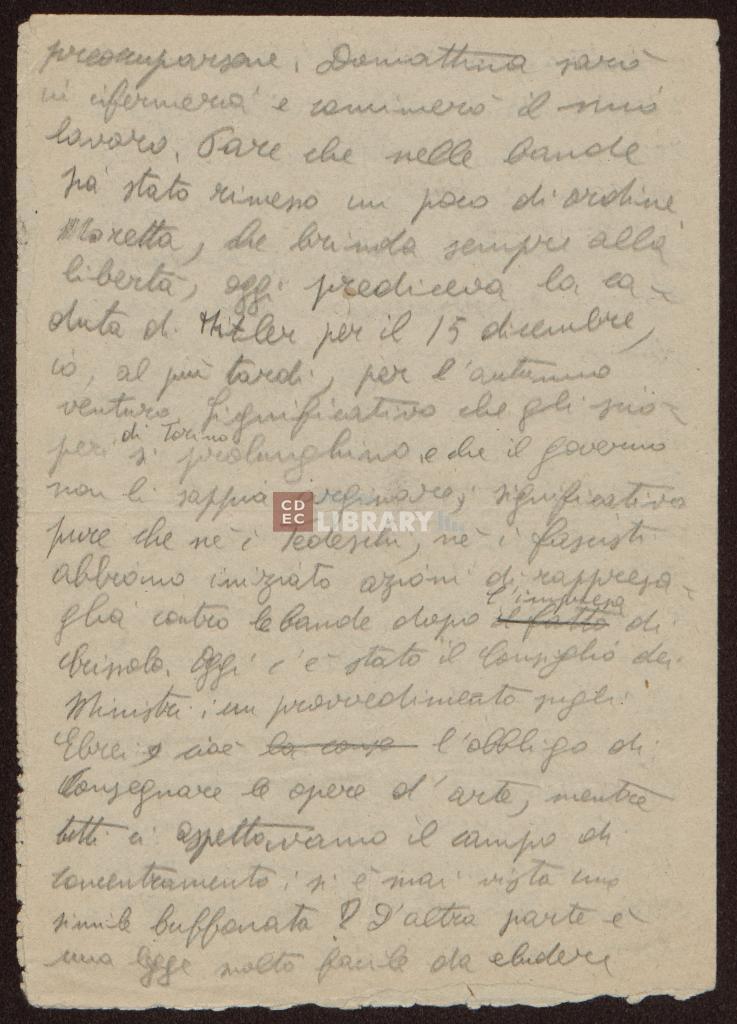 preoccuparsene. Domattina sarò
in infermeria e comincerò il mio
lavoro. Pare che nelle bande
sia stato rimesso un poco di ordine.
Moretta, che brinda sempre alla
libertà, oggi prediceva la ca-
duta di Hitler per il 15 dicembre,
o, al più tardi, per l'autunno
venturo. Significativo che gli scio-
peri di Torino si prolunghino, e che il governo
non li sappia arginare; significativo
pure che nè i Tedeschi, nè i fascisti
abbiano iniziato azioni di rappresa-
glia contro le bande dopo il fatto l'impresa di
Crissolo. Oggi c'è stato il Consiglio dei
Ministri: un provvedimento sugli
Ebrei, cioè la cons l'obbligo di
consegnare le opere d'arte, mentre
tutti ci aspettavamo il campo di
concentramento; si è mai vista una
simile buffonata? D'altra parte è
una legge molto facile da eludere
CDEC LIBRARY